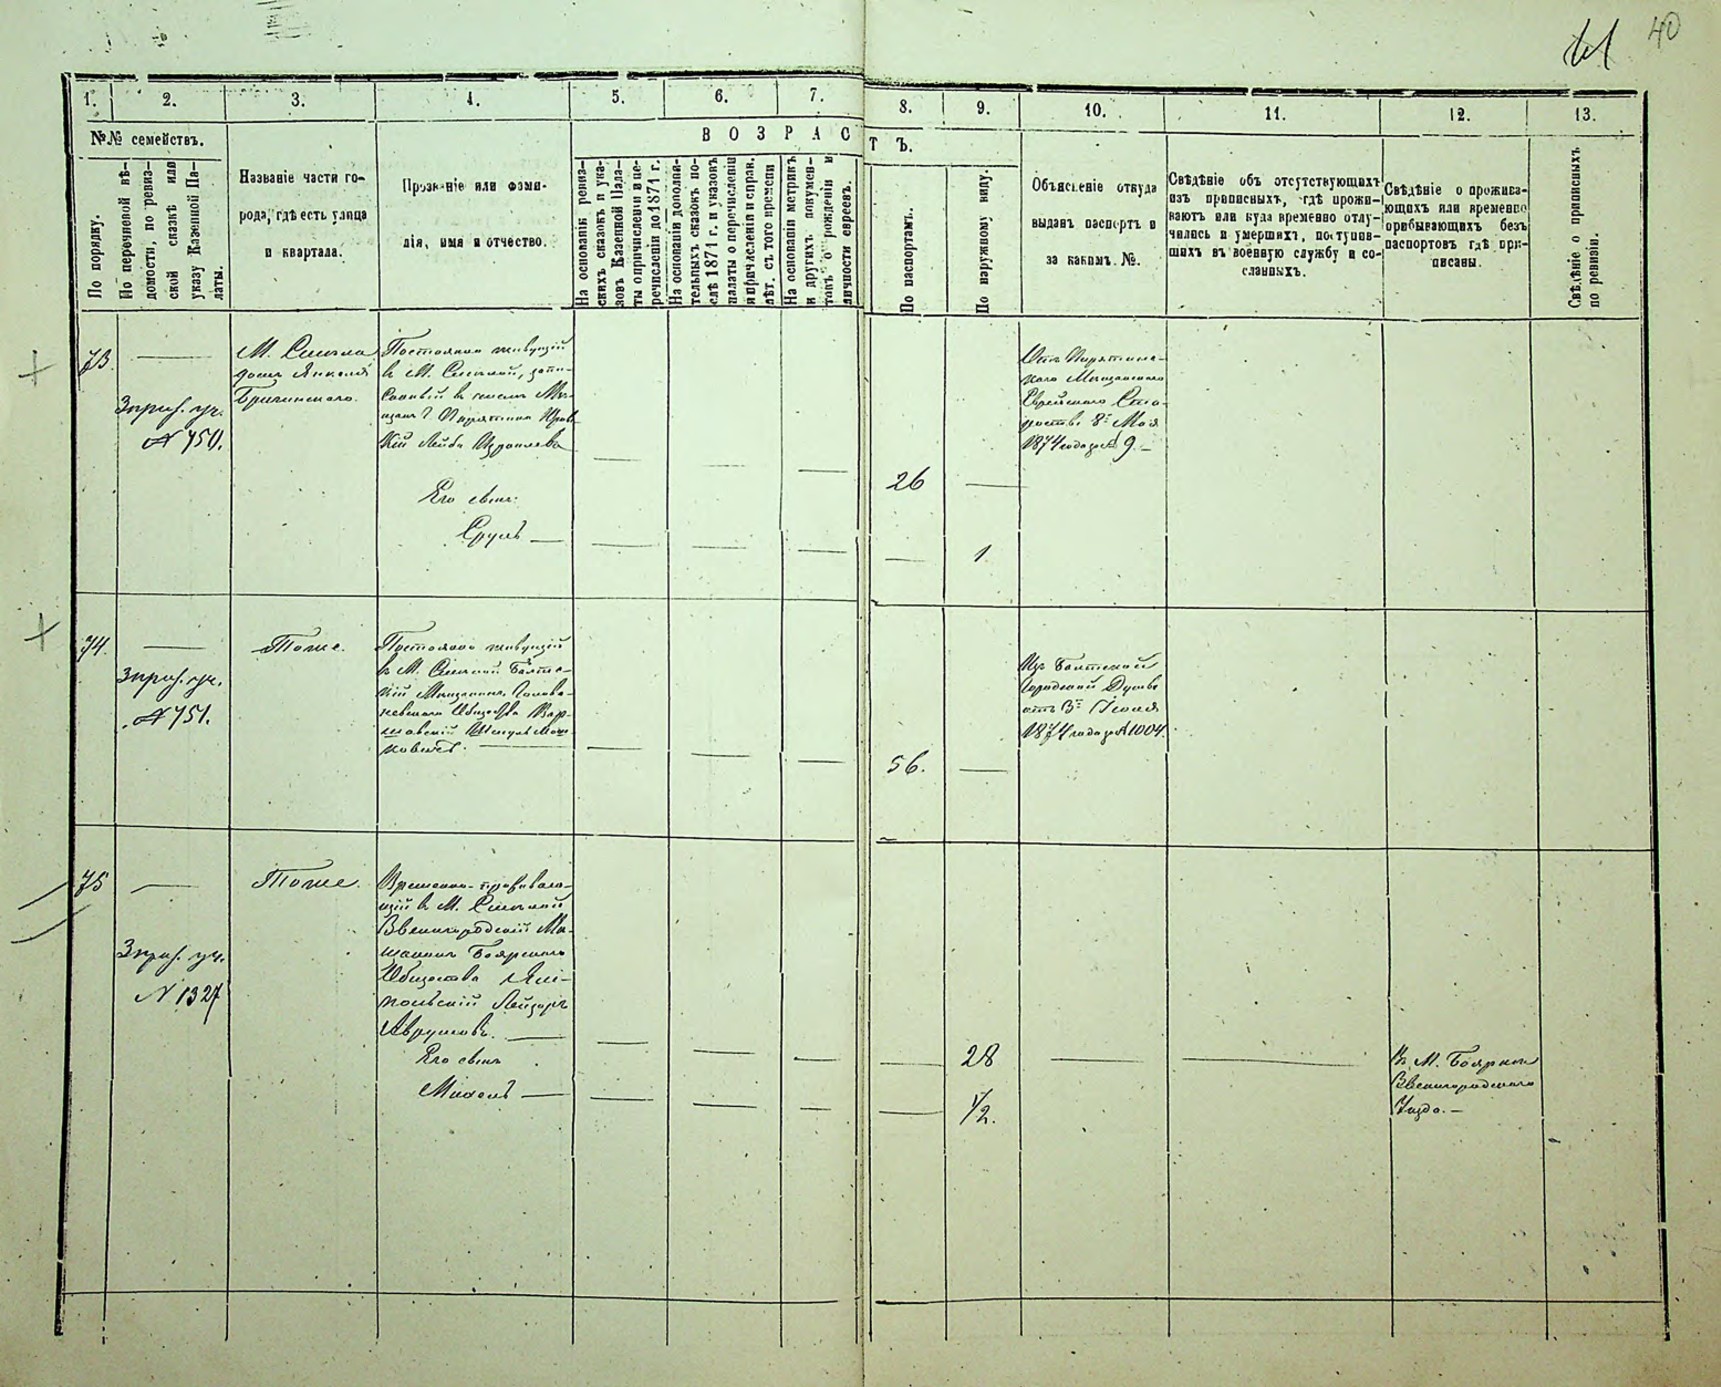 40
1.
2.
3.
4.
5.
6.
7.
8.
9.
10.
11.
12.
13.
№№ семействъ.
ВОЗРАСТЪ.
По порядку.
По перечновой вѣ-
домости, по ревиз-
ской сказкѣ или
указу Казенной Па-
латы.
Названіе части го-
рода, гдѣ есть улица
и квартала.
Прозваніе или фами-
лія, имя и отчество.
На основаніи ревиз-
скихъ сказокъ и ука-
зовъ Казенной Пала-
ты о причисленіи и пе-
речисленіи до 1871 г.
На основаніи дополни-
тельныхъ сказокъ по-
слѣ 1871 г. и указовъ
палаты о перечисленіи
и причисленіи и справ.
лѣт. съ того времени
На основаніи метрикъ
и другихъ докумен-
товъ о рожденіи и
личности евреевъ.
По паспортамъ.
По наружному виду.
Объясненіе откуда
выданъ паспортъ и
за какимъ №.
Свѣдѣніе объ отсутствующихъ
изъ приписныхъ, гдѣ прожи-
ваютъ или куда временно отлу-
чились и умершихъ, поступив-
шихъ въ военную службу и со-
сланныхъ.
Свѣдѣніе о прожива-
ющихъ или временно
прибывающихъ безъ
паспортовъ гдѣ при-
писаны.
Свѣдѣніе о приписныхъ
по ревизіи.
73.
—
М. Смѣла
домъ Янкеля
№ 750.
Постоянно живущій
въ М. Смѣлой, запи-
санный въ
Лейба Израилевъ
Его сынъ:
Сруль —
26
1
Отъ Пирятинс-
каго Мѣщанскаго
Еврейскаго Ста-
росты 8го Мая
1874 года за № 9. —
74.
—
Тоже.
№ 751.
Постоянно живущій
въ М. Смѣлой Балтс-
кій Мѣщанинъ Голова-
невскаго Общества Вар-
шавскій
56.
Изъ Балтской
Городской Думы
отъ 3го Іюля
1874 года за № 1004.
75
—
Тоже.
N 1327
Временно-проживаю-
щій в М. Смѣлой
Звенигородскій Мѣ-
щанинъ Боярскаго
Общества Ям-
польскій Лейзоръ
Аврумовъ. —
Его сынъ
Михель —
28
1/2.
Въ М. Боярки
Звенигородскаго
Уѣзда. —